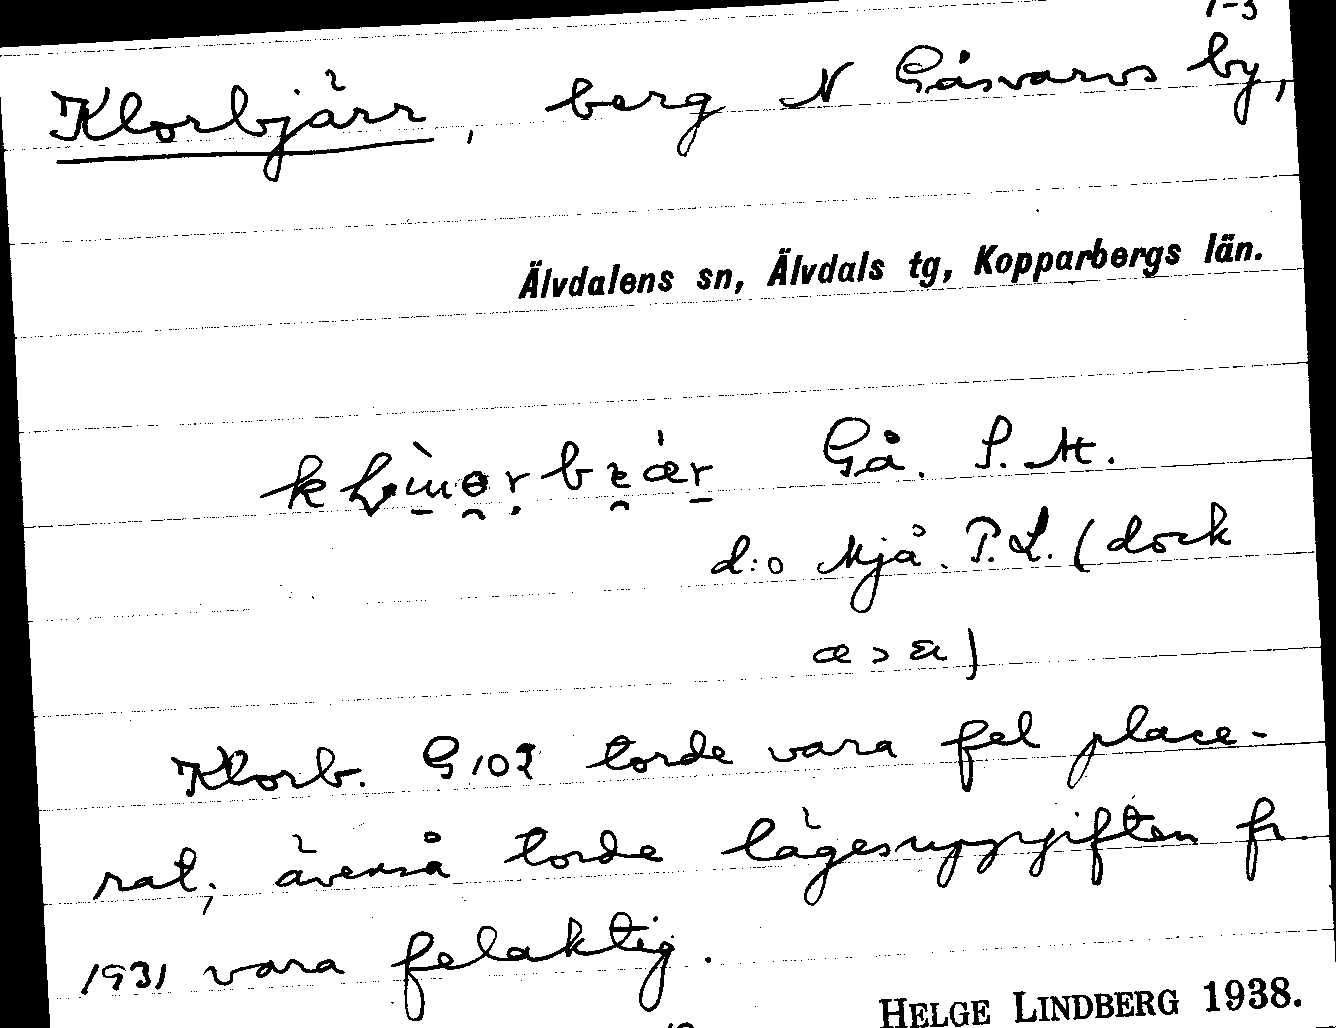 1-3
Klorbjärr, berg N Gåsvarvs by,
Älvdalens sn, Älvdals tg, Kopparbergs län.
Gå. S. M.
d:o Mjå. P.L. (dock
æ > a)
Klorb. G102 torde vara fel place-
rat; ävenså torde lägesuppgiften fr
1931 vara felaktig.
HELGE LINDBERG 1938.